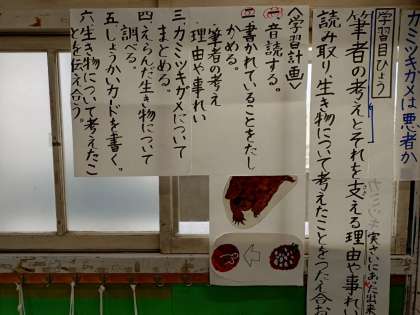 カミツキガメは悪者か
学習目ひょう
筆者の考えとそれを支える理由や事れい
読み取り、生き物について考えたことをつたえ合お
カミツキ
実さいにあった出来
〈学習計画〉
一、音読する。
二、書かれていることをたし
かめる。
・筆者の考え
・理由や事れい
三、カミツキガメについて
まとめる。
四、えらんだ生き物について
調べる。
五、しょうかいカードを書く。
六、生き物について考えたこ
とを伝え合う。